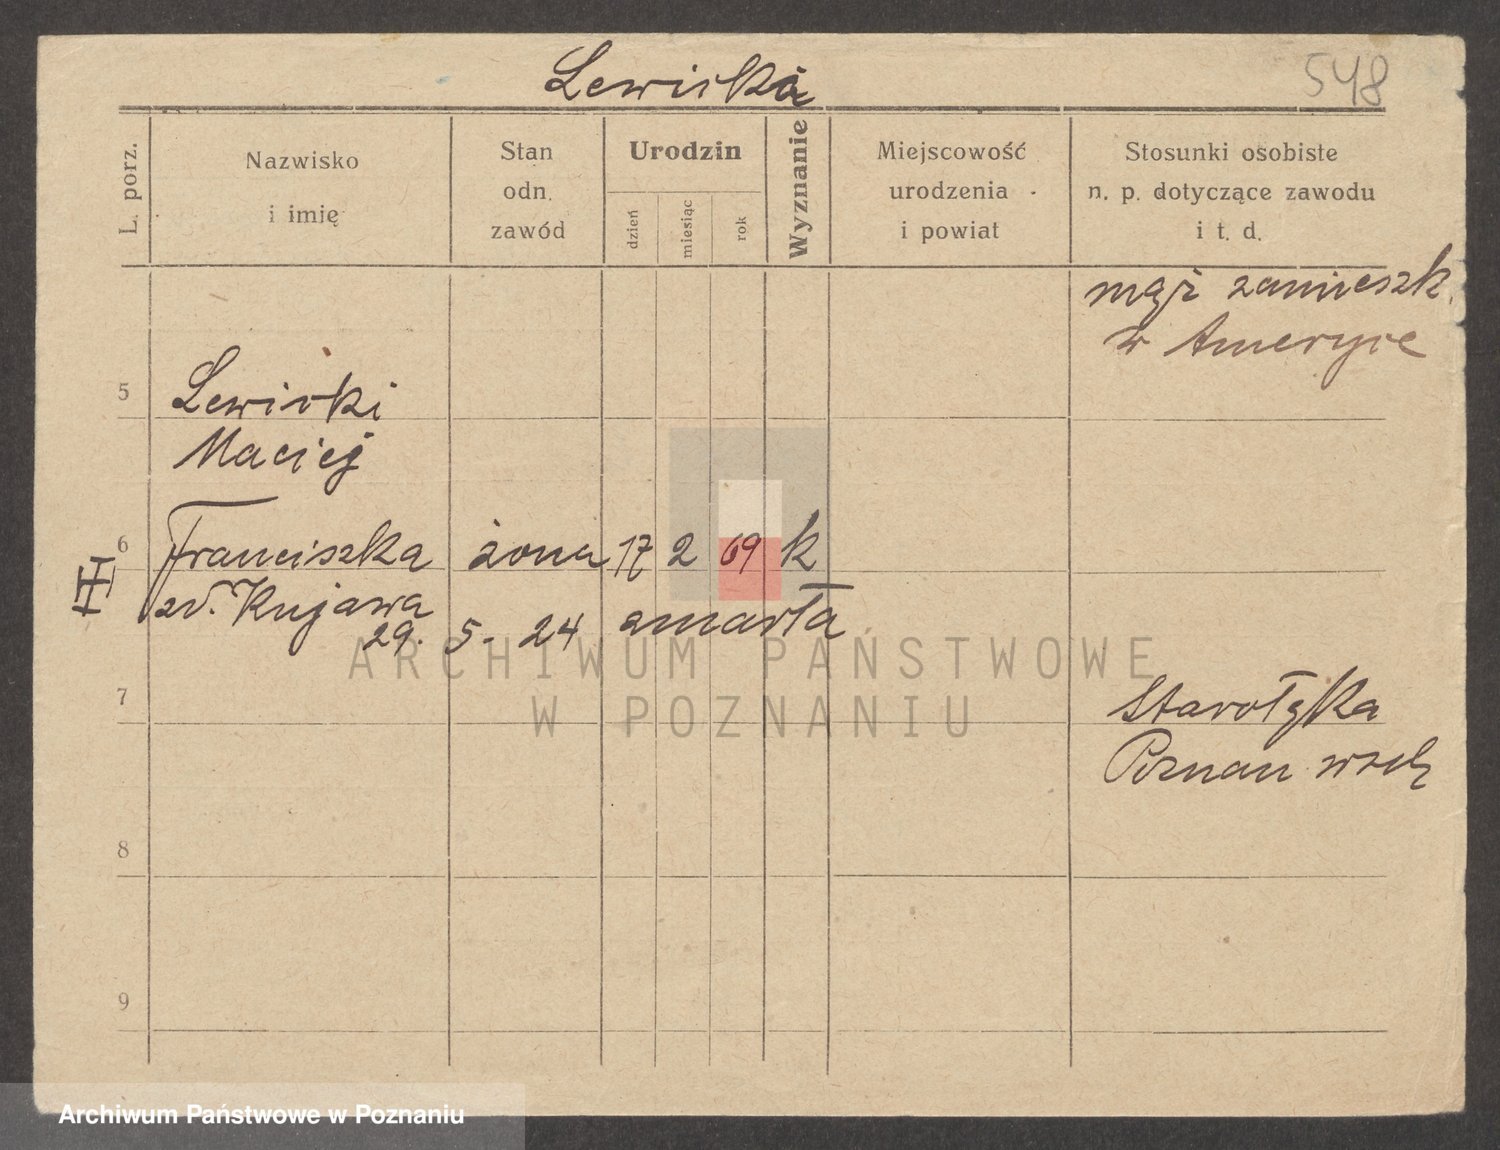 Lewicka
548
L. porz.
Nazwisko
i imię
Stan
odn.
zawód
Urodzin
dzień
miesiąc
rok
Wyznanie
Miejscowość
urodzenia
i powiat
Stosunki osobiste
n. p. dotyczące zawodu
i t. d.
mąż zamieszk.
w Ameryce
5
Lewicki
Maciej
6
Franciszka żona 17 2 69 k
zd. Kujawa
29. 5. 24 zmarła
7
Starołęka
Poznań wsch
8
9
ARCHIWUM PAŃSTWOWE
W POZNANIU
Archiwum Państwowe w Poznaniu